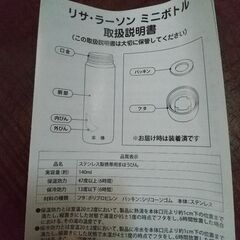 リサ・ラーソン ミニボトル
取扱説明書
(この取扱説明書は大切に保管してください)
口金
胴部
内びん
外びん
本体
パッキン
フタ
※お届け時は装着済です
品質表示
品名 ステンレス製携帯用まほうびん
実容量(約) 140ml
保温効力 47度以上(6時間)
保冷効力 13度以下(6時間)
材料 フタ:ポリプロピレン パッキン:シリコーンゴム 本体:ステンレス